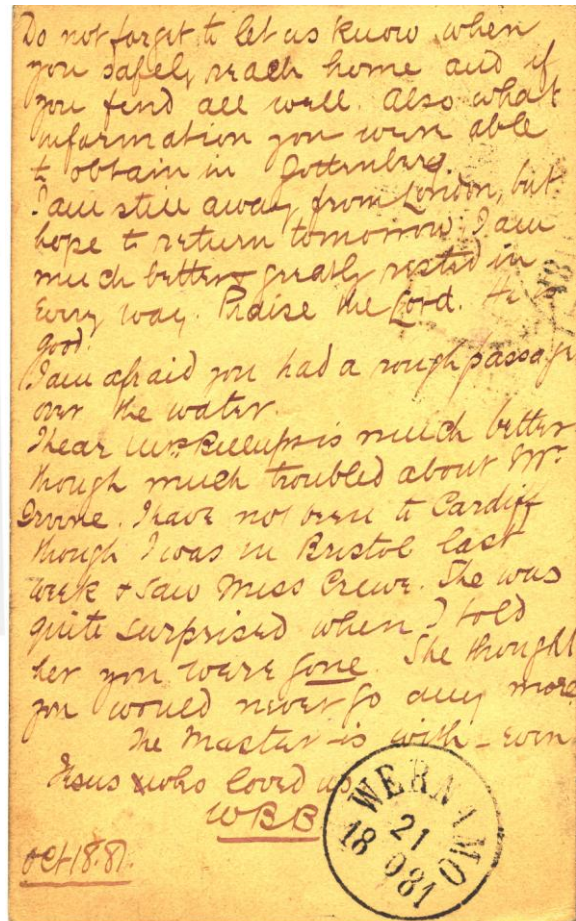 Do not forget to let us know when
you safely reach home and if
you find all well. Also what
information you were able
to obtain in Gottenberg.
I am still away from London, but
hope to return tomorrow. I am
much better & greatly rested in
every way. Praise the Lord. He is
good.
I am afraid you had a rough passage
over the water.
I hear Mrs is much better
though much troubled about Mr
Irvine. I have not been to Cardiff
though I was in Bristol last
week & saw Miss Crewe. She was
quite surprised when I told
her you were gone. She thought
you would never go any more
The Master is with - even
Jesus who loved us
WBB
Oct 18. 81.
WERNAMO
21
18 O 81